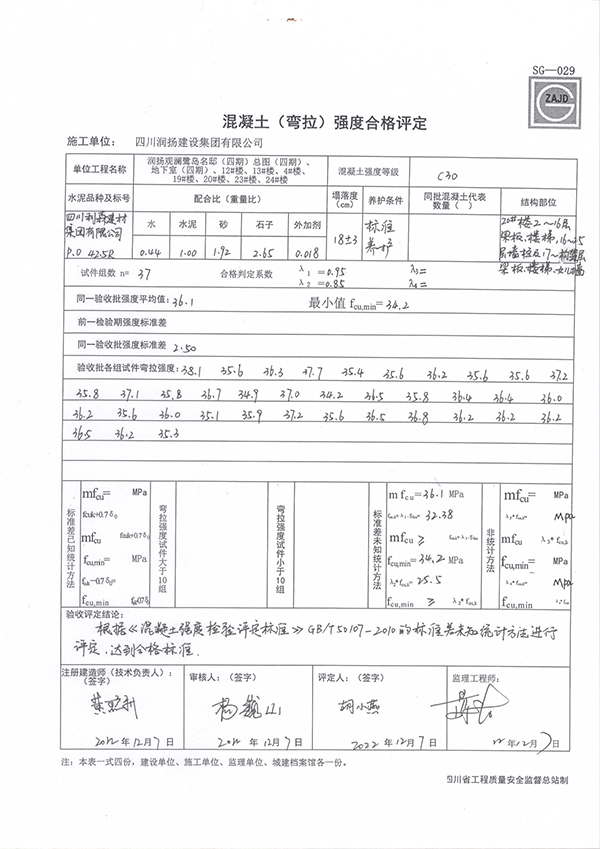 SG—029
ZAJD
混凝土（弯拉）强度合格评定
施工单位： 四川润扬建设集团有限公司
单位工程名称 润扬观澜鹭岛名邸（四期）总图（四期）、地下室（四期）、12#楼、13#楼、4#楼、19#楼、20#楼、23#楼、24#楼 混凝土强度等级 C30
水泥品种及标号 配合比（重量比） 塌落度(cm) 养护条件 同批混凝土代表数量（ ） 结构部位
四川利森建材集团有限公司 P.O 42.5R 水 水泥 砂 石子 外加剂 18±3 标准养护
0.44 1.00 1.92 2.65 0.018
20#楼2~16层梁板.楼梯,
试件组数 n= 37 合格判定系数 λ1=0.95 λ3=
λ2=0.85 λ4=
同一验收批强度平均值: 36.1 最小值 fcu,min= 34.2
前一检验期强度标准差
同一验收批强度标准差 2.50
验收批各组试件弯拉强度: 38.1 35.6 36.3 37.7 35.4 35.6 36.2 35.6 35.6 37.2
35.8 37.1 35.8 36.7 34.9 37.0 34.2 36.5 35.8 36.4 36.4 36.0
36.2 35.6 36.0 35.1 35.9 37.2 35.6 36.5 36.8 36.2 36.2 36.2
36.5 36.2 35.3
标准差已知统计方法 弯拉强度试件大于10组 弯拉强度试件小于10组 标准差未知统计方法 非统计方法
mfcu= MPa m fcu=36.1 MPa mfcu= MPa
fcuk+0.7δ0 32.38 MPa
mfcu fcuk+0.7δ0 mfcu ≥ mfcu
fcu,min= MPa fcu,min=34.2 MPa fcu,min= MPa
25.5 MPa
fcu,min fcu,min ≥ fcu,min
验收评定结论:
根据《混凝土强度检验评定标准》GB/T50107-2010的标准差未知统计方法进行
评定,达到合格标准.
注册建造师（技术负责人）:（签字） 审核人：（签字） 评定人：（签字） 监理工程师：
胡小燕
2022年12月7日 2022年12月7日 2022年12月7日 22年12月7日
注：本表一式四份，建设单位、施工单位、监理单位、城建档案馆各一份。
四川省工程质量安全监督总站制